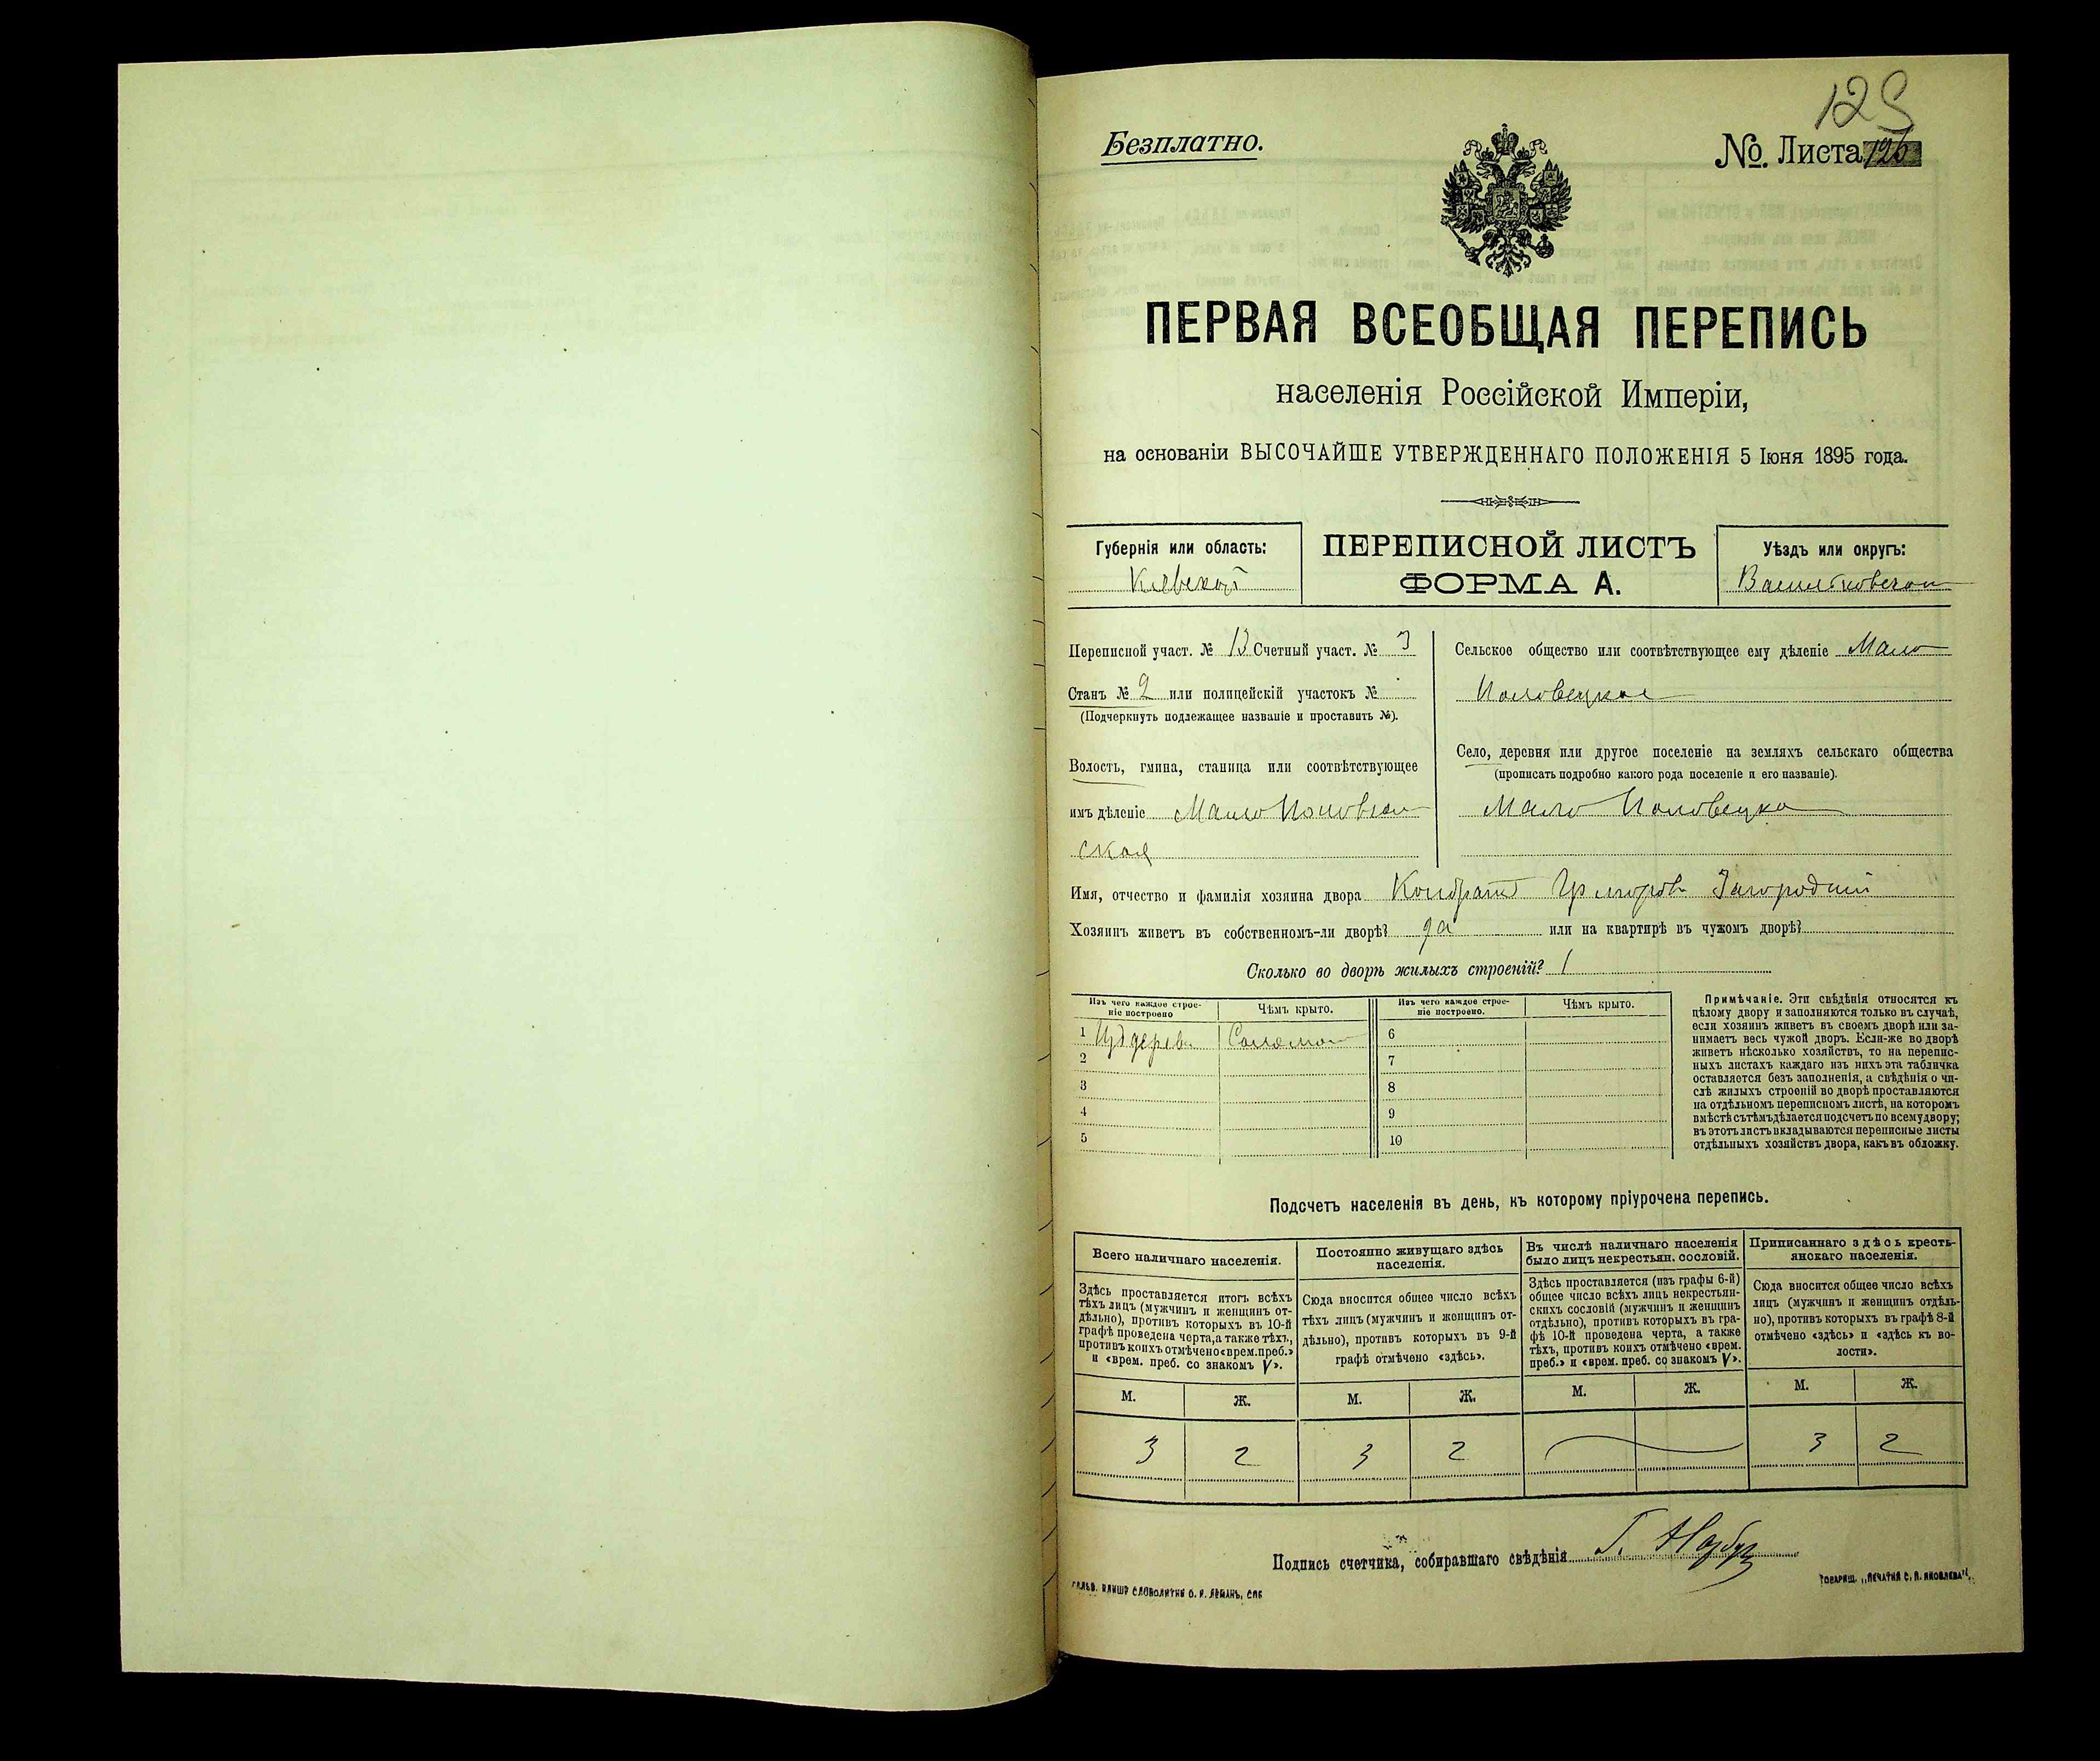 125
Безплатно.
No. Листа 126
ПЕРВАЯ ВСЕОБЩАЯ ПЕРЕПИСЬ
населенія Россійской Имперіи,
на основаніи ВЫСОЧАЙШЕ УТВЕРЖДЕННАГО ПОЛОЖЕНІЯ 5 Іюня 1895 года.
Губернія или область:
Кіевской
ПЕРЕПИСНОЙ ЛИСТЪ
ФОРМА А.
Уѣздъ или округъ:
Васильковскаго
Переписной участ. № 13 Счетный участ. № 3
Станъ № 2 или полицейскій участокъ №
(Подчеркнуть подлежащее названіе и проставить №).
Волость, гмина, станица или соотвѣтствующее
имъ дѣленіе Мало Половец
ская
Сельское общество или соотвѣтствующее ему дѣленіе Мало
Половецкое
Село, деревня или другое поселеніе на земляхъ сельскаго общества
(прописать подробно какого рода поселеніе и его названіе).
Мало Половецко
Имя, отчество и фамилія хозяина двора Кондратъ Григоровъ Загородній
Хозяинъ живетъ въ собственномъ-ли дворѣ? да или на квартирѣ въ чужомъ дворѣ?
Сколько во дворѣ жилыхъ строеній? 1
Изъ чего каждое строе-
ніе построено
Чѣмъ крыто.
Изъ чего каждое строе-
ніе построено.
Чѣмъ крыто.
1 Изъ дерева Соломою
2
3
4
5
6
7
8
9
10
Примѣчаніе. Эти свѣдѣнія относятся къ
цѣлому двору и заполняются только въ случаѣ,
если хозяинъ живетъ въ своемъ дворѣ или за-
нимаетъ весь чужой дворъ. Если-же во дворѣ
живетъ нѣсколько хозяйствъ, то на перепис-
ныхъ листахъ каждаго изъ нихъ эта табличка
оставляется безъ заполненія, а свѣдѣнія о чи-
слѣ жилыхъ строеній во дворѣ проставляются
на отдѣльномъ переписномъ листѣ, на которомъ
вмѣстѣ съ тѣмъ дѣлается подсчетъ по всему двору;
въ этотъ листъ вкладываются переписные листы
отдѣльныхъ хозяйствъ двора, какъ въ обложку.
Подсчетъ населенія въ день, къ которому пріурочена перепись.
Всего наличнаго населенія.
Здѣсь проставляется итогъ всѣхъ
тѣхъ лицъ (мужчинъ и женщинъ от-
дѣльно), противъ которыхъ въ 10-й
графѣ проведена черта, а также тѣхъ,
противъ коихъ отмѣчено «врем. преб.»
и «врем. преб. со знакомъ V».
Постоянно живущаго здѣсь
населенія.
Сюда вносится общее число всѣхъ
тѣхъ лицъ (мужчинъ и женщинъ от-
дѣльно), противъ которыхъ въ 9-й
графѣ отмѣчено «здѣсь».
Въ числѣ наличнаго населенія
было лицъ некрестьян. сословій.
Здѣсь проставляется (изъ графы 6-й)
общее число всѣхъ лицъ некрестьян-
скихъ сословій (мужчинъ и женщинъ
отдѣльно), противъ которыхъ въ гра-
фѣ 10-й проведена черта, а также
тѣхъ, противъ коихъ отмѣчено «врем.
преб.» и «врем. преб. со знакомъ V».
Приписаннаго здѣсь кресть-
янскаго населенія.
Сюда вносится общее число всѣхъ
лицъ (мужчинъ и женщинъ отдѣль-
но), противъ которыхъ въ графѣ 8-й
отмѣчено «здѣсь» и «здѣсь къ во-
лости».
М. Ж. М. Ж. М. Ж. М. Ж.
3 2 3 2 3 2
Подпись счетчика, собиравшаго свѣдѣнія Г.
СЛОВОЛИТНИ О. И. ЛЕМАНЪ, СПБ
ТОВАРИЩ. „ПЕЧАТНЯ С. П. ЯКОВЛЕВА“.